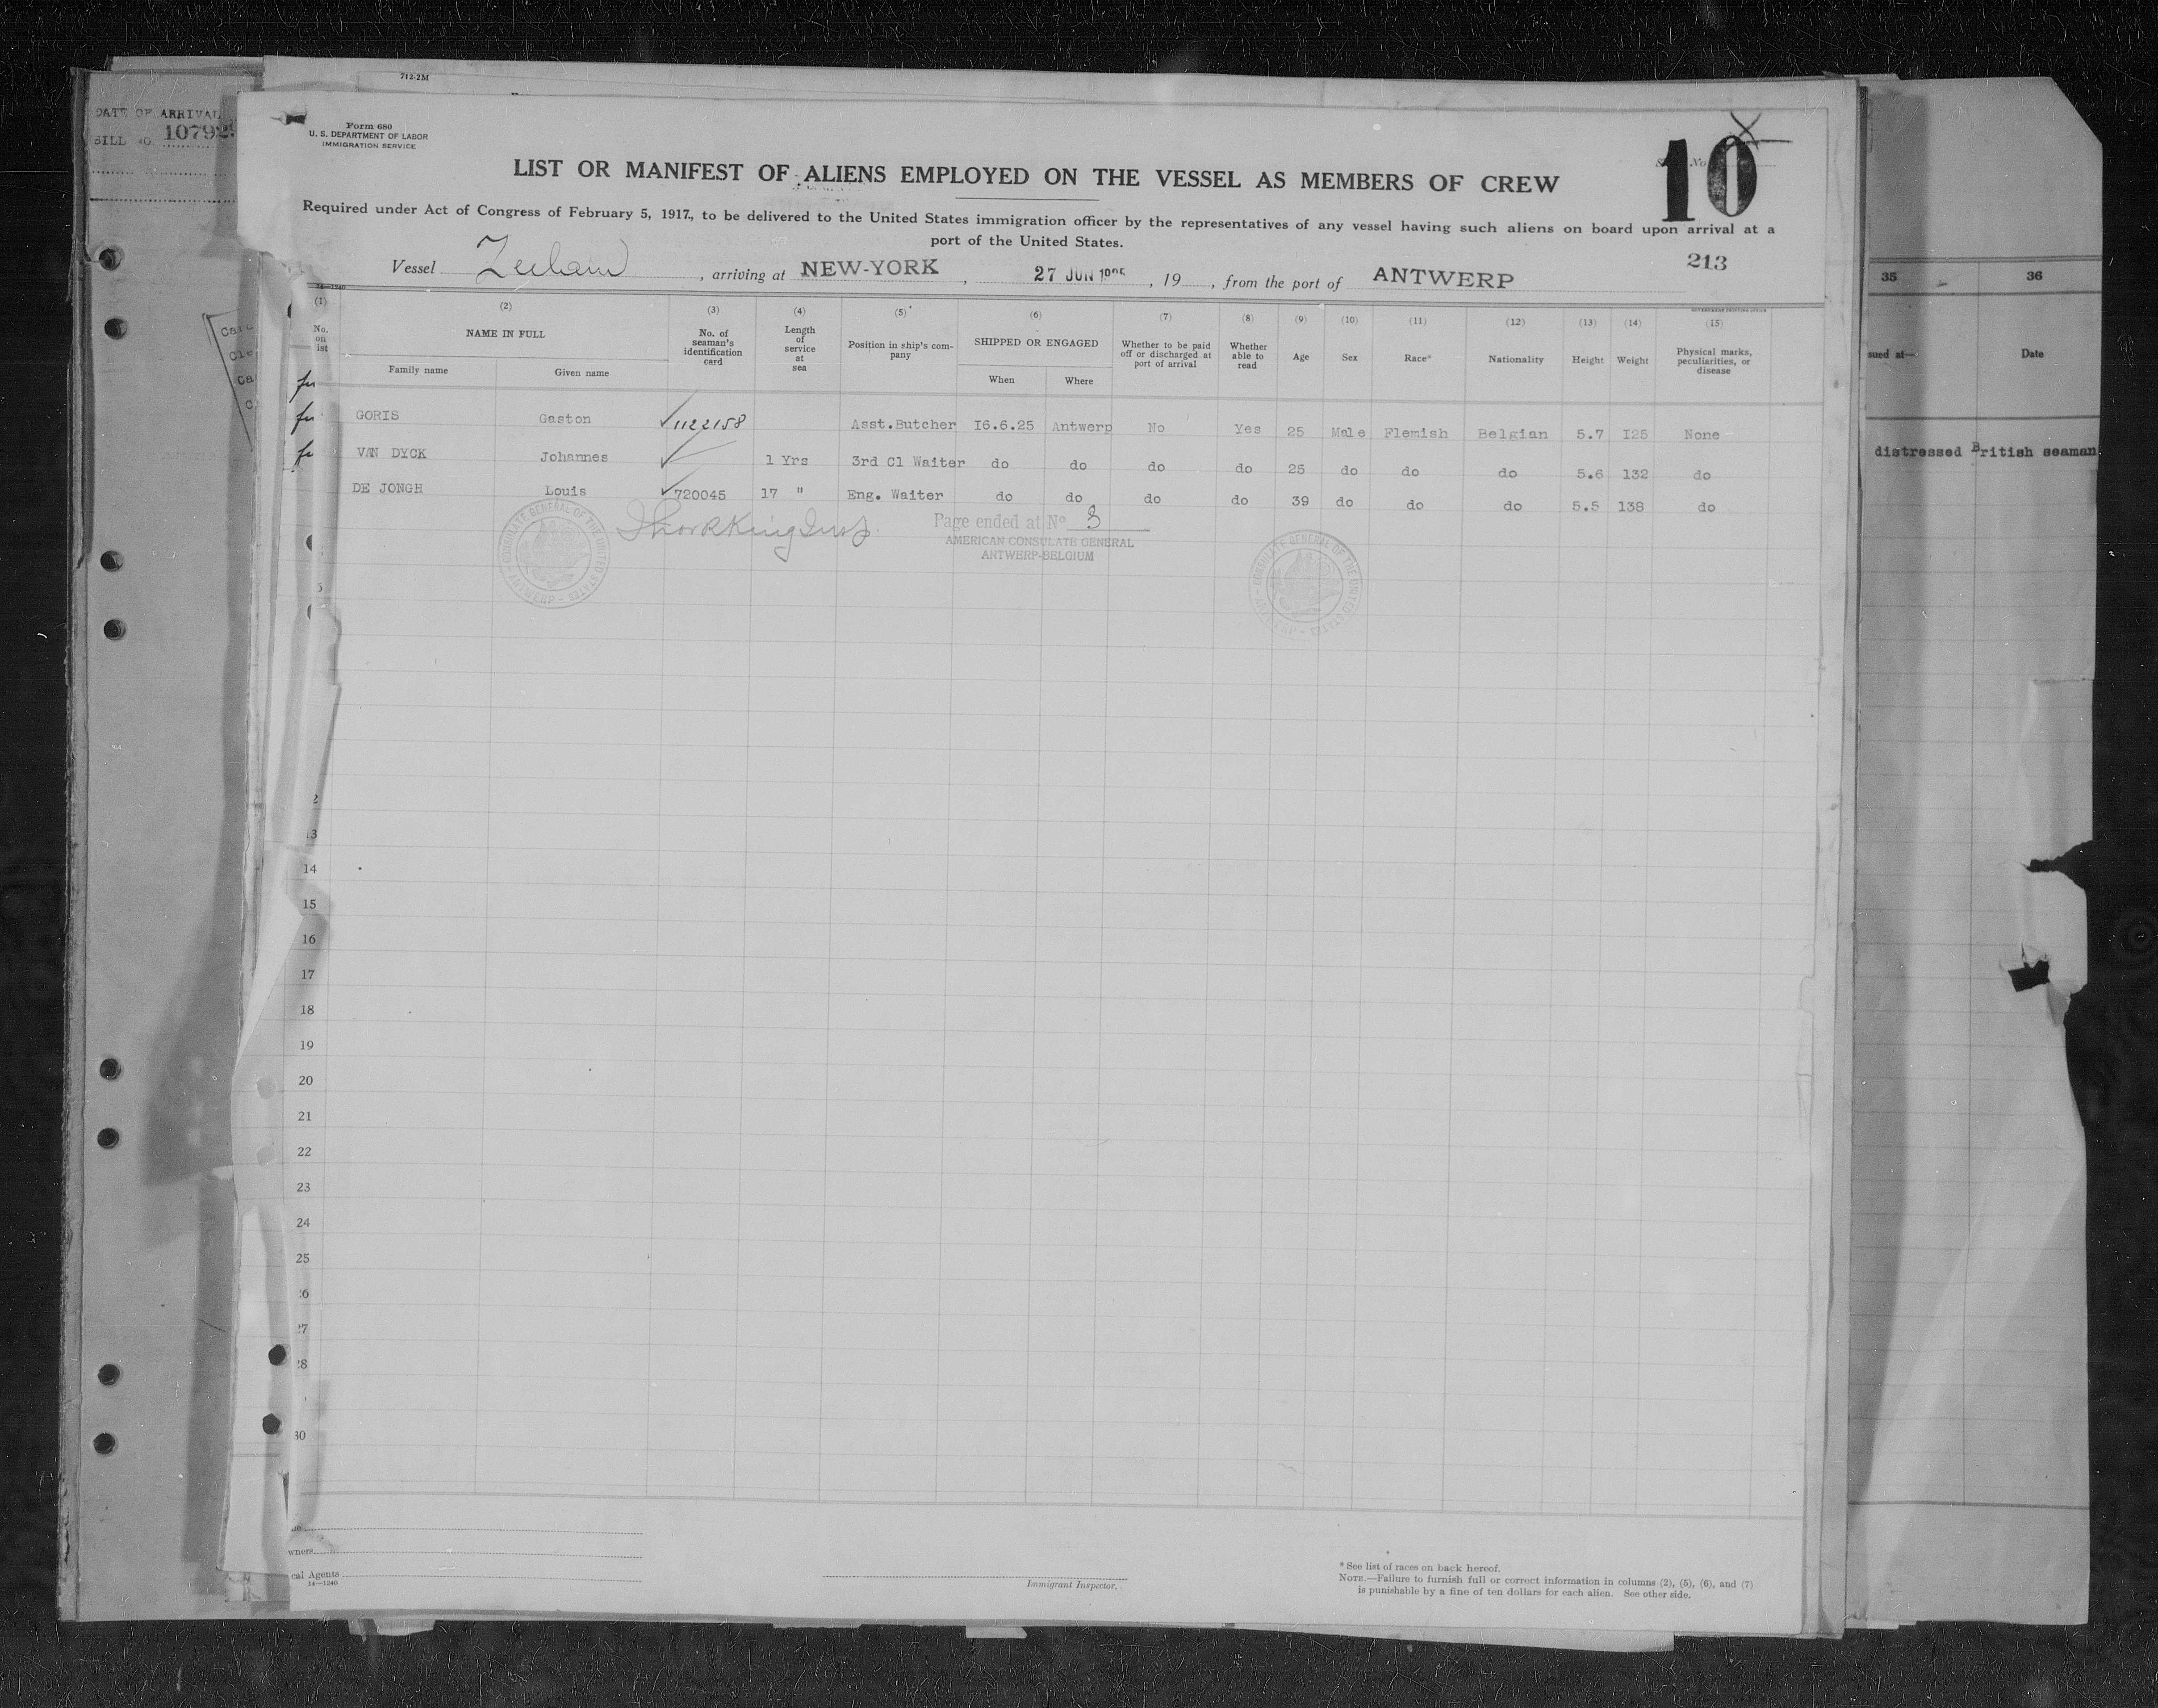 712-2M
DATE OF ARRIVAL
BILL NO. 10792
Form 680
U. S. DEPARTMENT OF LABOR
IMMIGRATION SERVICE
No. 10
LIST OR MANIFEST OF ALIENS EMPLOYED ON THE VESSEL AS MEMBERS OF CREW
Required under Act of Congress of February 5, 1917, to be delivered to the United States immigration officer by the representatives of any vessel having such aliens on board upon arrival at a
port of the United States.
213
Vessel Zeeland, arriving at NEW-YORK, 27 JUN 1925, 19, from the port of ANTWERP
14—1240
GOVERNMENT PRINTING OFFICE
(1) (2) (3) (4) (5) (6) (7) (8) (9) (10) (11) (12) (13) (14) (15)
No. on list NAME IN FULL No. of seaman's identification card Length of service at sea Position in ship's company SHIPPED OR ENGAGED Whether to be paid off or discharged at port of arrival Whether able to read Age Sex Race* Nationality Height Weight Physical marks, peculiarities, or disease
Family name Given name When Where
GORIS Gaston 1122158 Asst.Butcher I6.6.25 Antwerp No Yes 25 Male Flemish Belgian 5.7 I25 None
VAN DYCK Johannes 1 Yrs 3rd Cl Waiter do do do do 25 do do do 5.6 132 do
DE JONGH Louis 720045 17 " Eng. Waiter do do do do 39 do do do 5.5 138 do
Page ended at No 3
AMERICAN CONSULATE GENERAL
ANTWERP-BELGIUM
CONSULATE GENERAL OF THE UNITED STATES - ANTWERP -
CONSULATE GENERAL OF THE UNITED STATES - ANTWERP -
2
13
14
15
16
17
18
19
20
21
22
23
24
25
26
27
28
30
35 36
sued at— Date
distressed British seaman
wners
cal Agents
14—1240
Immigrant Inspector.
* See list of races on back hereof.
NOTE.—Failure to furnish full or correct information in columns (2), (5), (6), and (7)
is punishable by a fine of ten dollars for each alien. See other side.